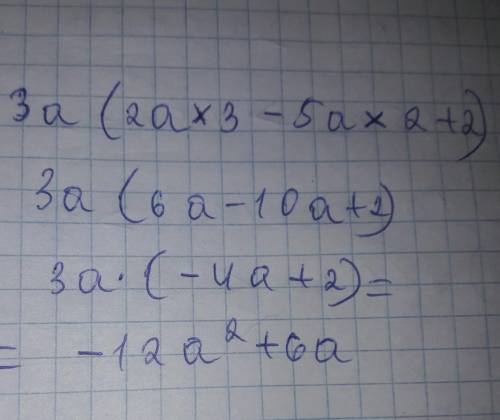 3a (2a×3 - 5a×2+2)
3a (6a-10a+2)
3a·(-4a+2)=
= -12a²+6a